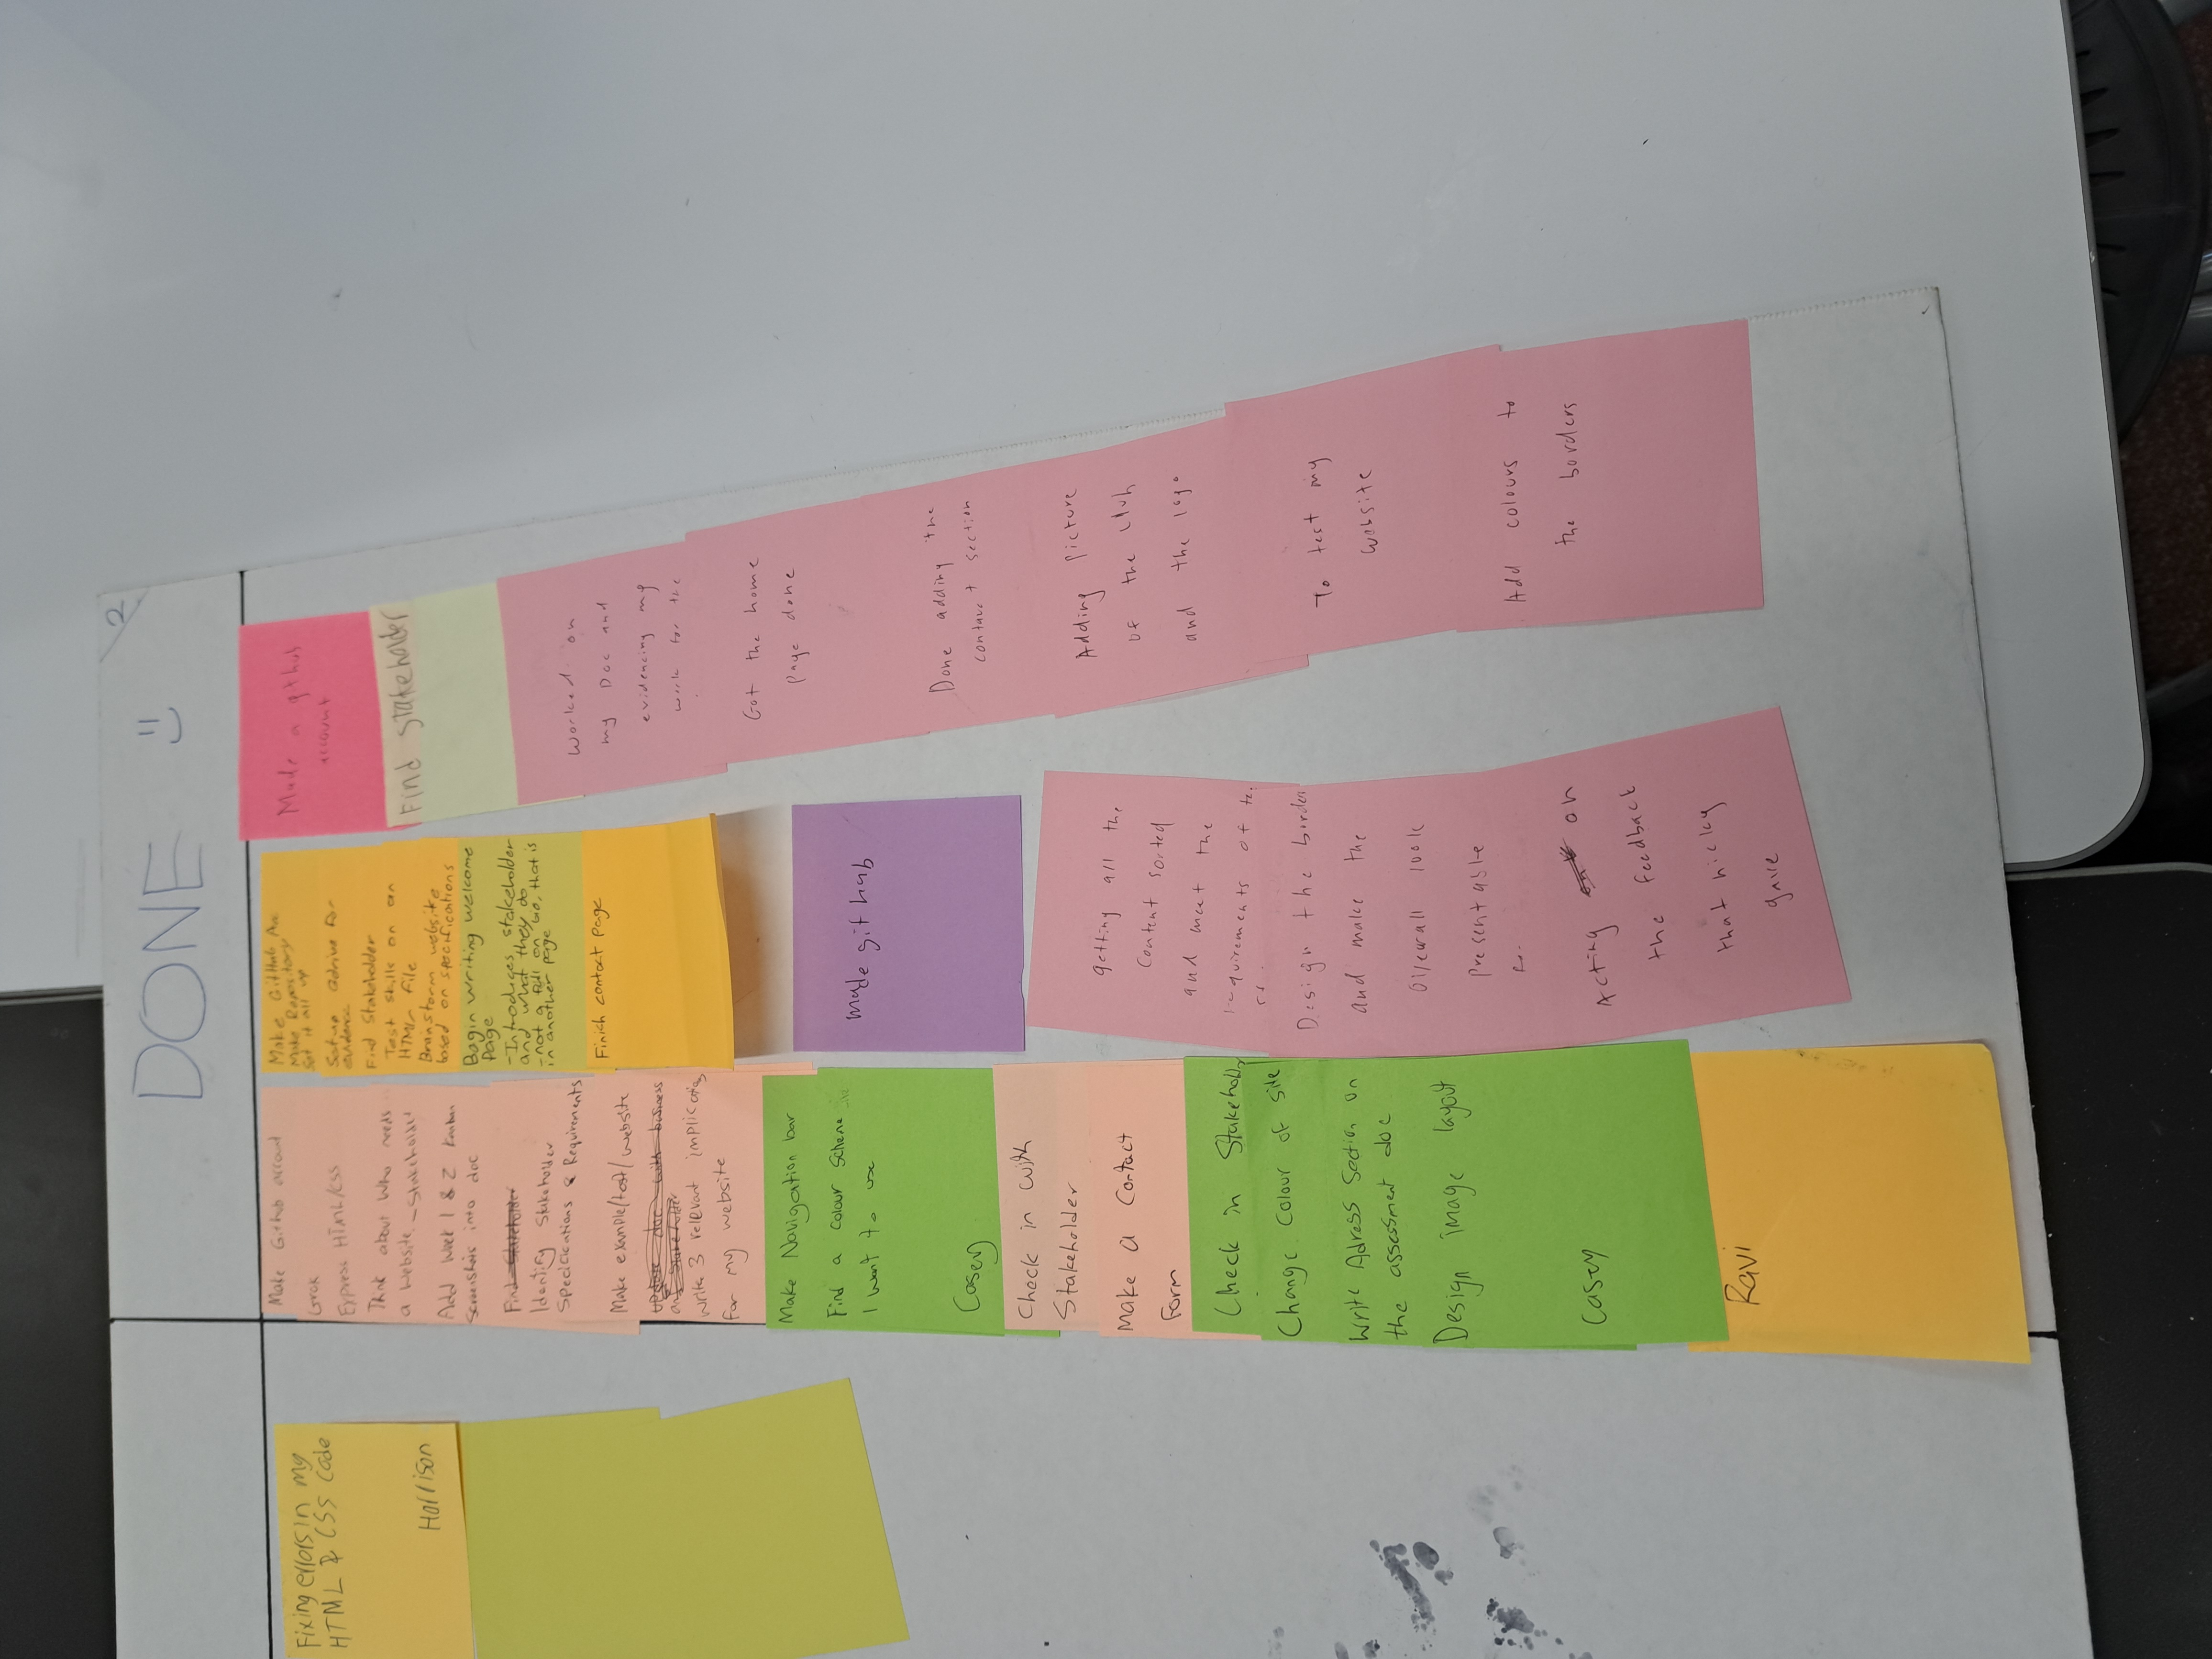 2
DONE
Fixing errors in my
HTML & CSS code
Harrison
Make Github account
Grok
Express HTML/CSS
Think about who needs
a website - Stakeholder
Add week 1 & 2 Kanban
Screenshots into doc
Find Stakeholder
Identify Stakeholder
Specifications & Requirements
Make example/test/website
update doc with business
and Stakeholder
write 3 relevant implications
for my website
Make Navigation bar
Find a colour scheme
I want to use
Casey
Check in with
Stakeholder
Make a Contact
Form
Check in Stakeholder
Change Colour of site
Write Adress Section on
the assessment doc
Design image layout
Casey
Ravi
Make GitHub Acc
Make Repository
Set it all up
Setup Gdrive for
evidence
Find Stakeholder
Test skills on an
HTML file
Brainstorm website
based on specifications
Begin writing welcome
Page
-Introduces stakeholder
and what they do
-not a full on bio, that is
in another page
Finish contact page
made git hub
getting all the
content sorted
and meet the
requirements of
Design the border
and make the
overall look
presentable
Acting on
the feedback
that nicky
gave
Made a github
account
Find stakeholder
Worked on
my Doc and
evidencing my
work for the
Got the home
page done
Done adding the
contact section
Adding picture
of the club
and the logo
To test my
website
Add colours to
the borders